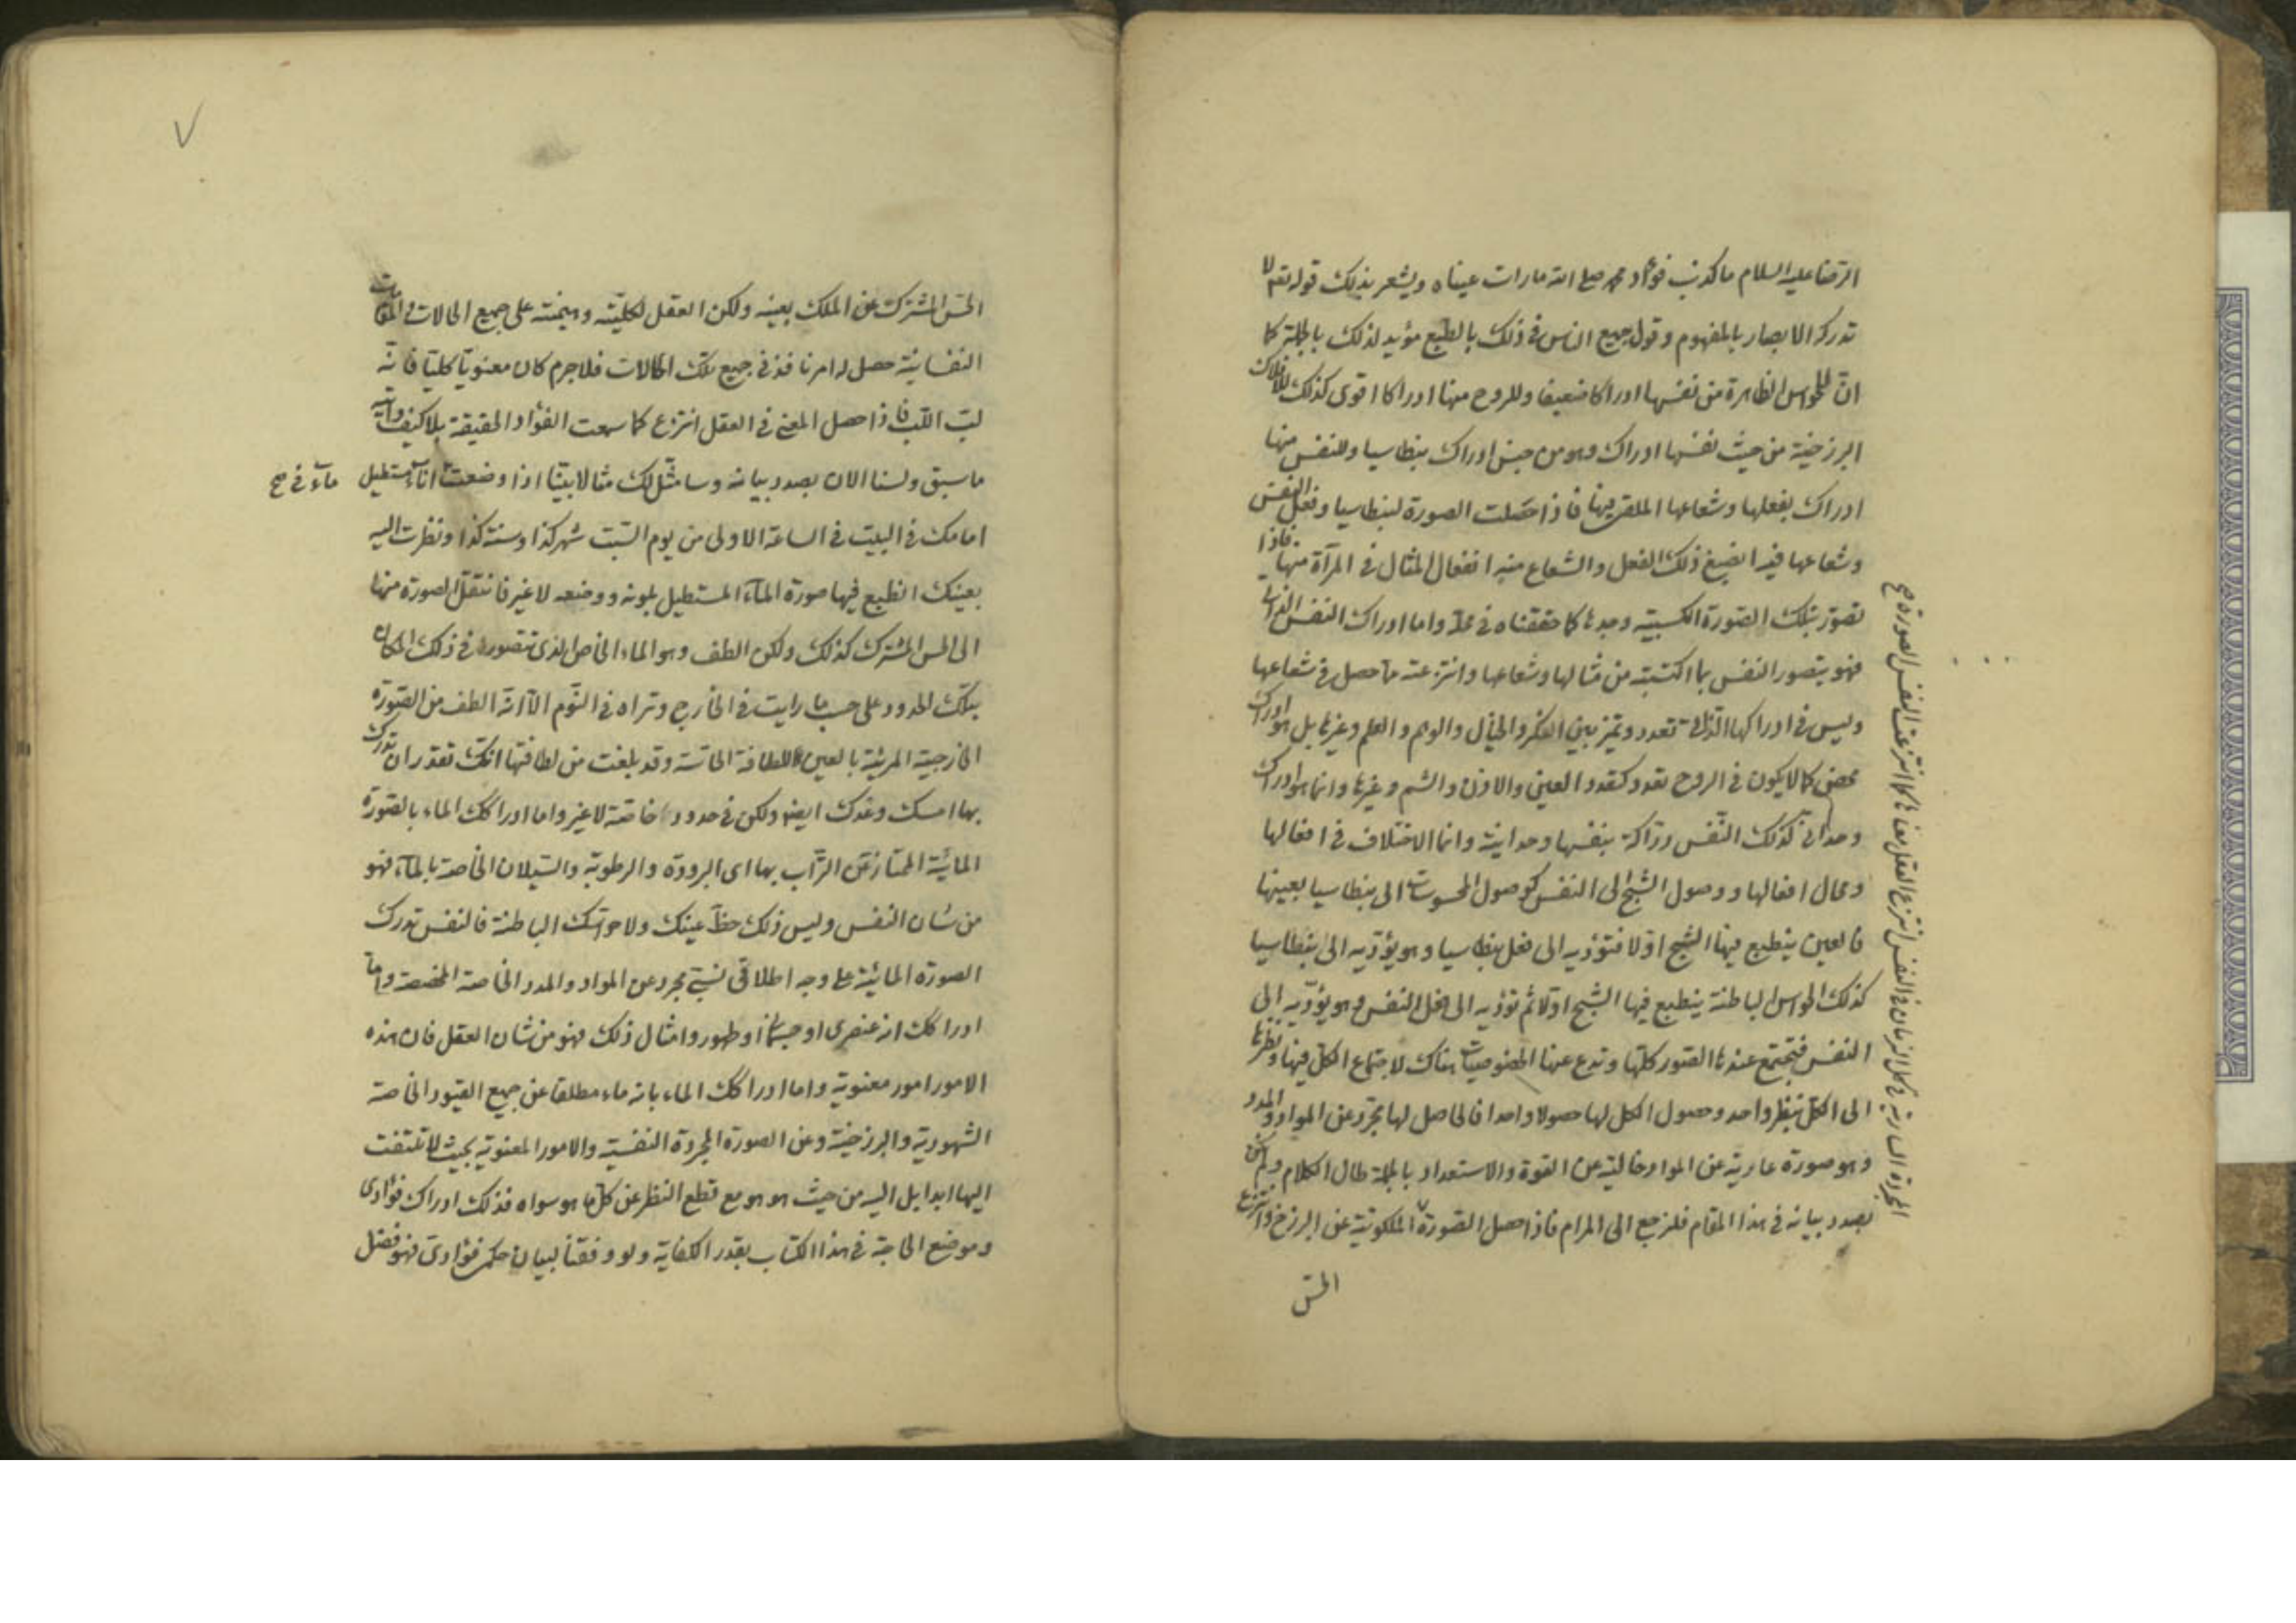 الرضا عليه السلام ما كذب فؤاد محمد صلى الله ما رات عيناه ويشعر بذلك قوله تعم لا
تدركه الابصار بالمفهوم وقول جميع الناس فى ذلك بالطبع مؤيد لذلك بالجملة كما
انّ للحواس الظاهرة من نفسها ادراكا ضعيفا وللروح منها ادراكا اقوى كذلك للافلاك
البرزخية من حيث نفسها ادراك وهو من جنس ادراك بنطاسيا وللنفس منها
ادراك بفعلها وشعاعها الملقى فيها فاذا حصلت الصورة لبنطاسيا وفعل النفس
وشعاعها فيه انصبغ ذلك الفعل والشعاع منه انفعال المثال فى المرآة منها فاذا
تصور بتلك الصورة اكتسبته وحدها كما حققناه فى محله واما ادراك النفس الذاتى
فهو بتصور النفس بما اكتسبته من مثالها وشعاعها وانتزعته مما حصل فى شعاعها
وليس فى ادراكها الذاتى تعدد وتميز بين الفكر والخيال والوهم والعلم وغيرها بل هو ادراك
محض كما لا يكون فى الروح تعدد كتعدد العين والاذن والشم وغيرها وانما هو ادراك
وحدانى كذلك النّفس درّاكة بنفسها وحدانية وانما الاختلاف فى افعالها
ومحال افعالها ووصول الشبح الى النفس كوصول المحسوسات الى بنطاسيا بعينها
فالعين ينطبع فيها الشبح اوّلا فتؤديه الى فعل بنطاسيا وهو يؤدّيه الى بنطاسيا
كذلك الحواس الباطنة ينطبع فيها الشبح اوّلا ثم تؤديه الى فعل النفس وهو يؤدّيه الى
النفس فتجتمع عندها الصور كلّها وتدع عنها الخصوصيات هناك لاجتماع الكل فيها ونظرها
الى الكل بنظر واحد وحصول الكل لها حصولا واحدا فالحاصل لها مجرّد عن المواد والمدد
وهو صورة عارية عن المواد خالية عن القوة والاستعداد بالجملة طال الكلام ولم اكن
بصدد بيانه فى هذا المقام فلنرجع الى المرام فاذا حصل الصورة الملكوتية عن البرزخ وانتزع
المجردة السارية فى كل الزمان فى النفس انتزع العقل معناها كما انتزعت النفس الصورة صح
الحسّ
الحسّ المشترك عن الملك بعينه ولكن العقل لكليّته وهيمنته على جميع الحالات والمقامات
النفسانية حصل له امر نافذ فى جميع تلك الحالات فلاجرم كان معنويّا كليّا فانّه
لبّ اللّب فاذا حصل المعنى فى العقل انتزع كما سمعت الفؤاد الحقيقة بلا كيف وانّيّة
ما سبق ولسنا الان بصدد بيانه وسامثّل لك مثالا بيّنا اذا وضعت اناءً مستطيل
ماء فى صح
امامك فى البيت فى الساعة الاولى من يوم السّبت شهر كذا وسنة كذا ونظرت اليه
بعينك انطبع فيها صورة الماء المستطيل بلونه ووضعه لا غير فانتقل الصورة منها
الى الحس المشترك كذلك ولكن الطف وهو الماء الخاص الذى تتصوره فى ذلك المكان
بتلك الحدود على حسب ما رايت فى الخارج وتراه فى النّوم الّا انّه الطف من الصّورة
الخارجية المرئيّة بالعين للطافة الحاسّة وقد بلغت من لطافتها انّك تقدر ان تدرك
بها امسك وغدك ايضا ولكن فى حدودها خاصّة لا غير واما ادراكك الماء بالصّورة
المائيّة الممتاز عن التّراب بها اى البرودة والرطوبة والسّيلان الخاصة بالماء فهو
من شان النفس وليس ذلك حظّ عينك ولا حواسّك الباطنة فالنفس تدرك
الصورة المائيّة على وجه اطلاقى نسبى مجرد عن المواد والمدد الخاصة المخصصة واما
ادراكك انه عنصرى او جسمانى او طهور وامثال ذلك فهو من شان العقل فان هذه
الامور امور معنوية واما ادراكك الماء بانه ماء مطلقا عن جميع القيود الخاصة
الشهودية والبرزخية وعن الصورة المجردة النفسية والامور المعنوية بحيث لا تلتفت
اليها ابدا بل اليه من حيث هو هو مع قطع النظر عن كل ما هو سواه فذلك ادراك فؤادى
وموضع الحاجة فى هذا الكتاب بقدر الكفاية ولو وفقنا لبيان حكم فؤادىّ فهو فضل